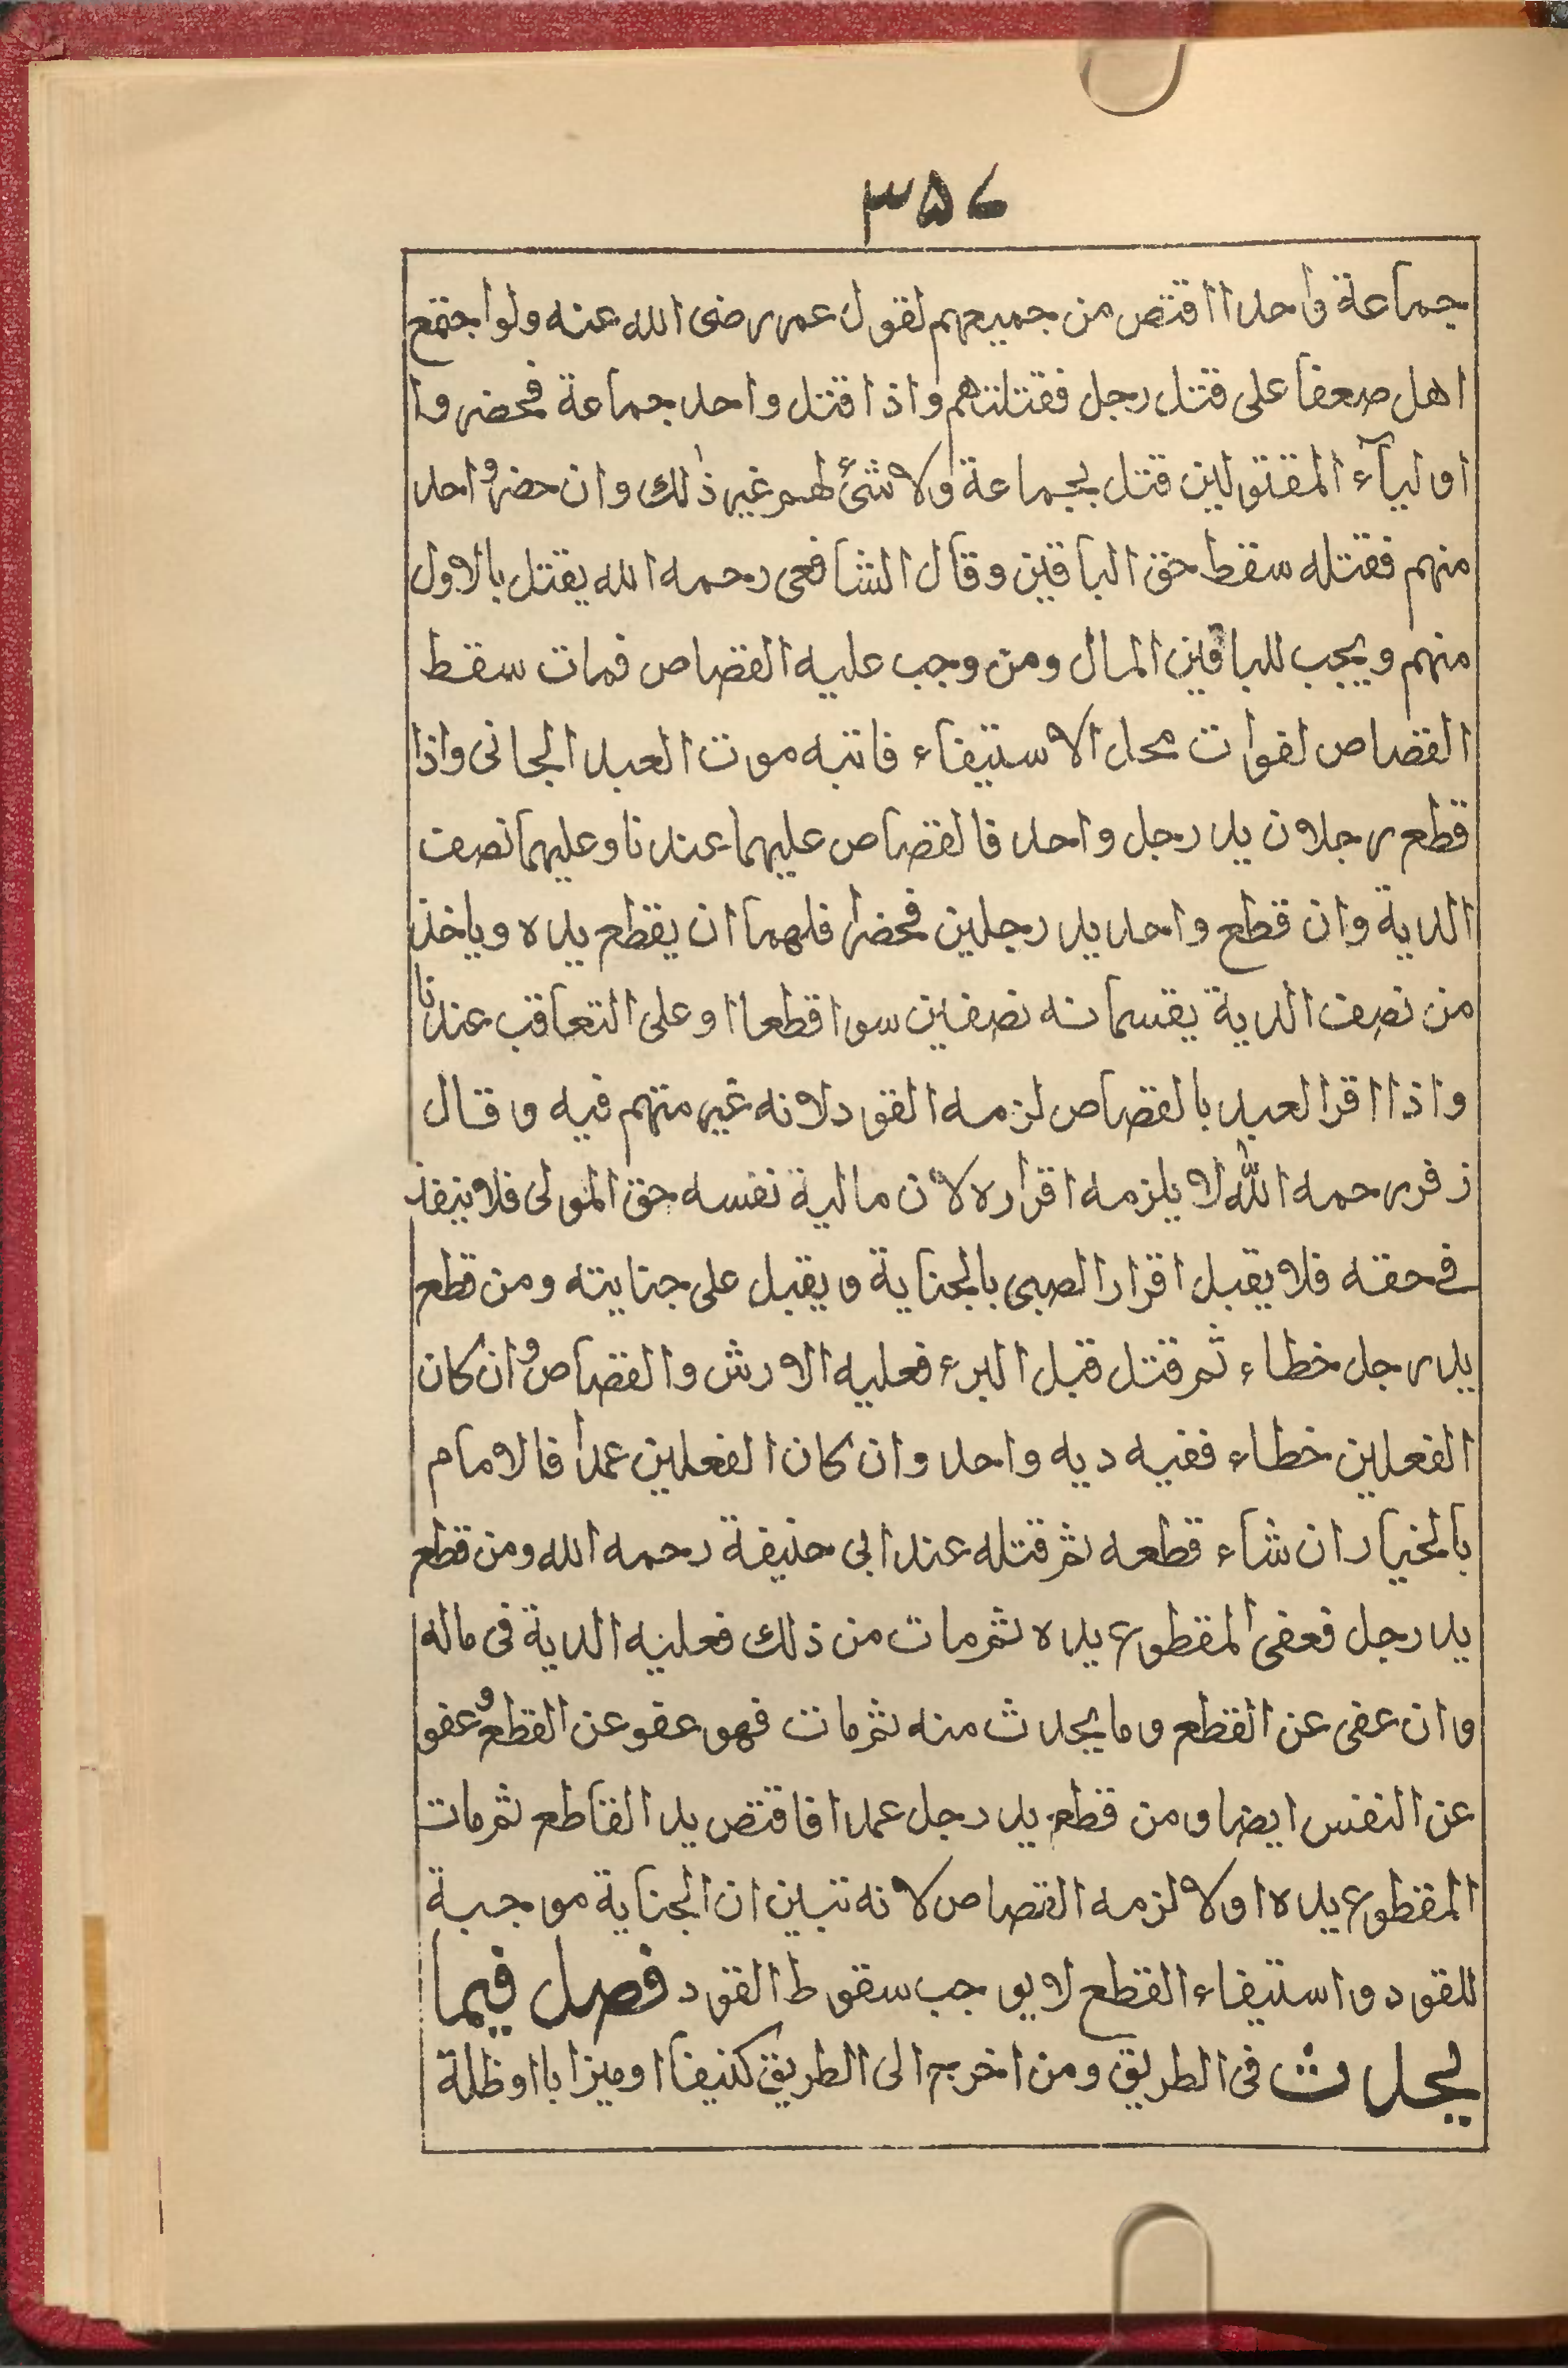 ٣٥٦
جماعة واحدا اقتص من جميعهم لقول عمر رضى الله عنه ولو اجتمع
اهل صعفا على قتل رجل فقتلتهم واذا قتل واحد جماعة فحضر وا
اوليآء المقتولين قتل بجماعة ولا شئ لهم غير ذلك وان حضر واحد
منهم فقتله سقط حق الباقين وقال الشافعى رحمه الله يقتل بالاول
منهم ويجب للباقين المال ومن وجب عليه القصاص فمات سقط
القصاص لفوات محل الاستيفاء فاتبه موت العبد الجانى واذا
قطع رجلان يد رجل واحد فالقصاص عليهما عندنا وعليهما نصف
الدية وان قطع واحد يد رجلين فحضرا فلهما ان يقطع يده وياخذ
من نصف الدية يقسمانه نصفين سوا قطعا او على التعاقب عندنا
واذا اقر العبد بالقصاص لزمه القود لانه غير متهم فيه وقال
زفر رحمه الله لا يلزمه اقراره لان مالية نفسه حق المولى فلا ينفذ
فى حقه فلا يقبل اقرار الصبى بالجناية ويقبل على جنايته ومن قطع
يد رجل خطاء ثم قتل قبل البرء فعليه الارش والقصاص وان كان
الفعلين خطاء ففيه ديه واحد وان كان الفعلين عمدا فالامام
بالخيار ان شاء قطعه ثم قتله عند ابى حنيفة رحمه الله ومن قطع
يد رجل فعفى المقطوع يده ثم مات من ذلك فعليه الدية فى ماله
وان عفى عن القطع وما يحدث منه ثم مات فهو عفو عن القطع وعفو
عن النفس ايضا ومن قطع يد رجل عمدا فاقتص يد القاطع ثم مات
المقطوع يده اولا لزمه القصاص لانه تبين ان الجناية موجبة
للقود واستيفاء القطع لا يوجب سقوط القود فصل فيما
يحدث فى الطريق ومن اخرج الى الطريق كنيفا او ميزابا او ظلة